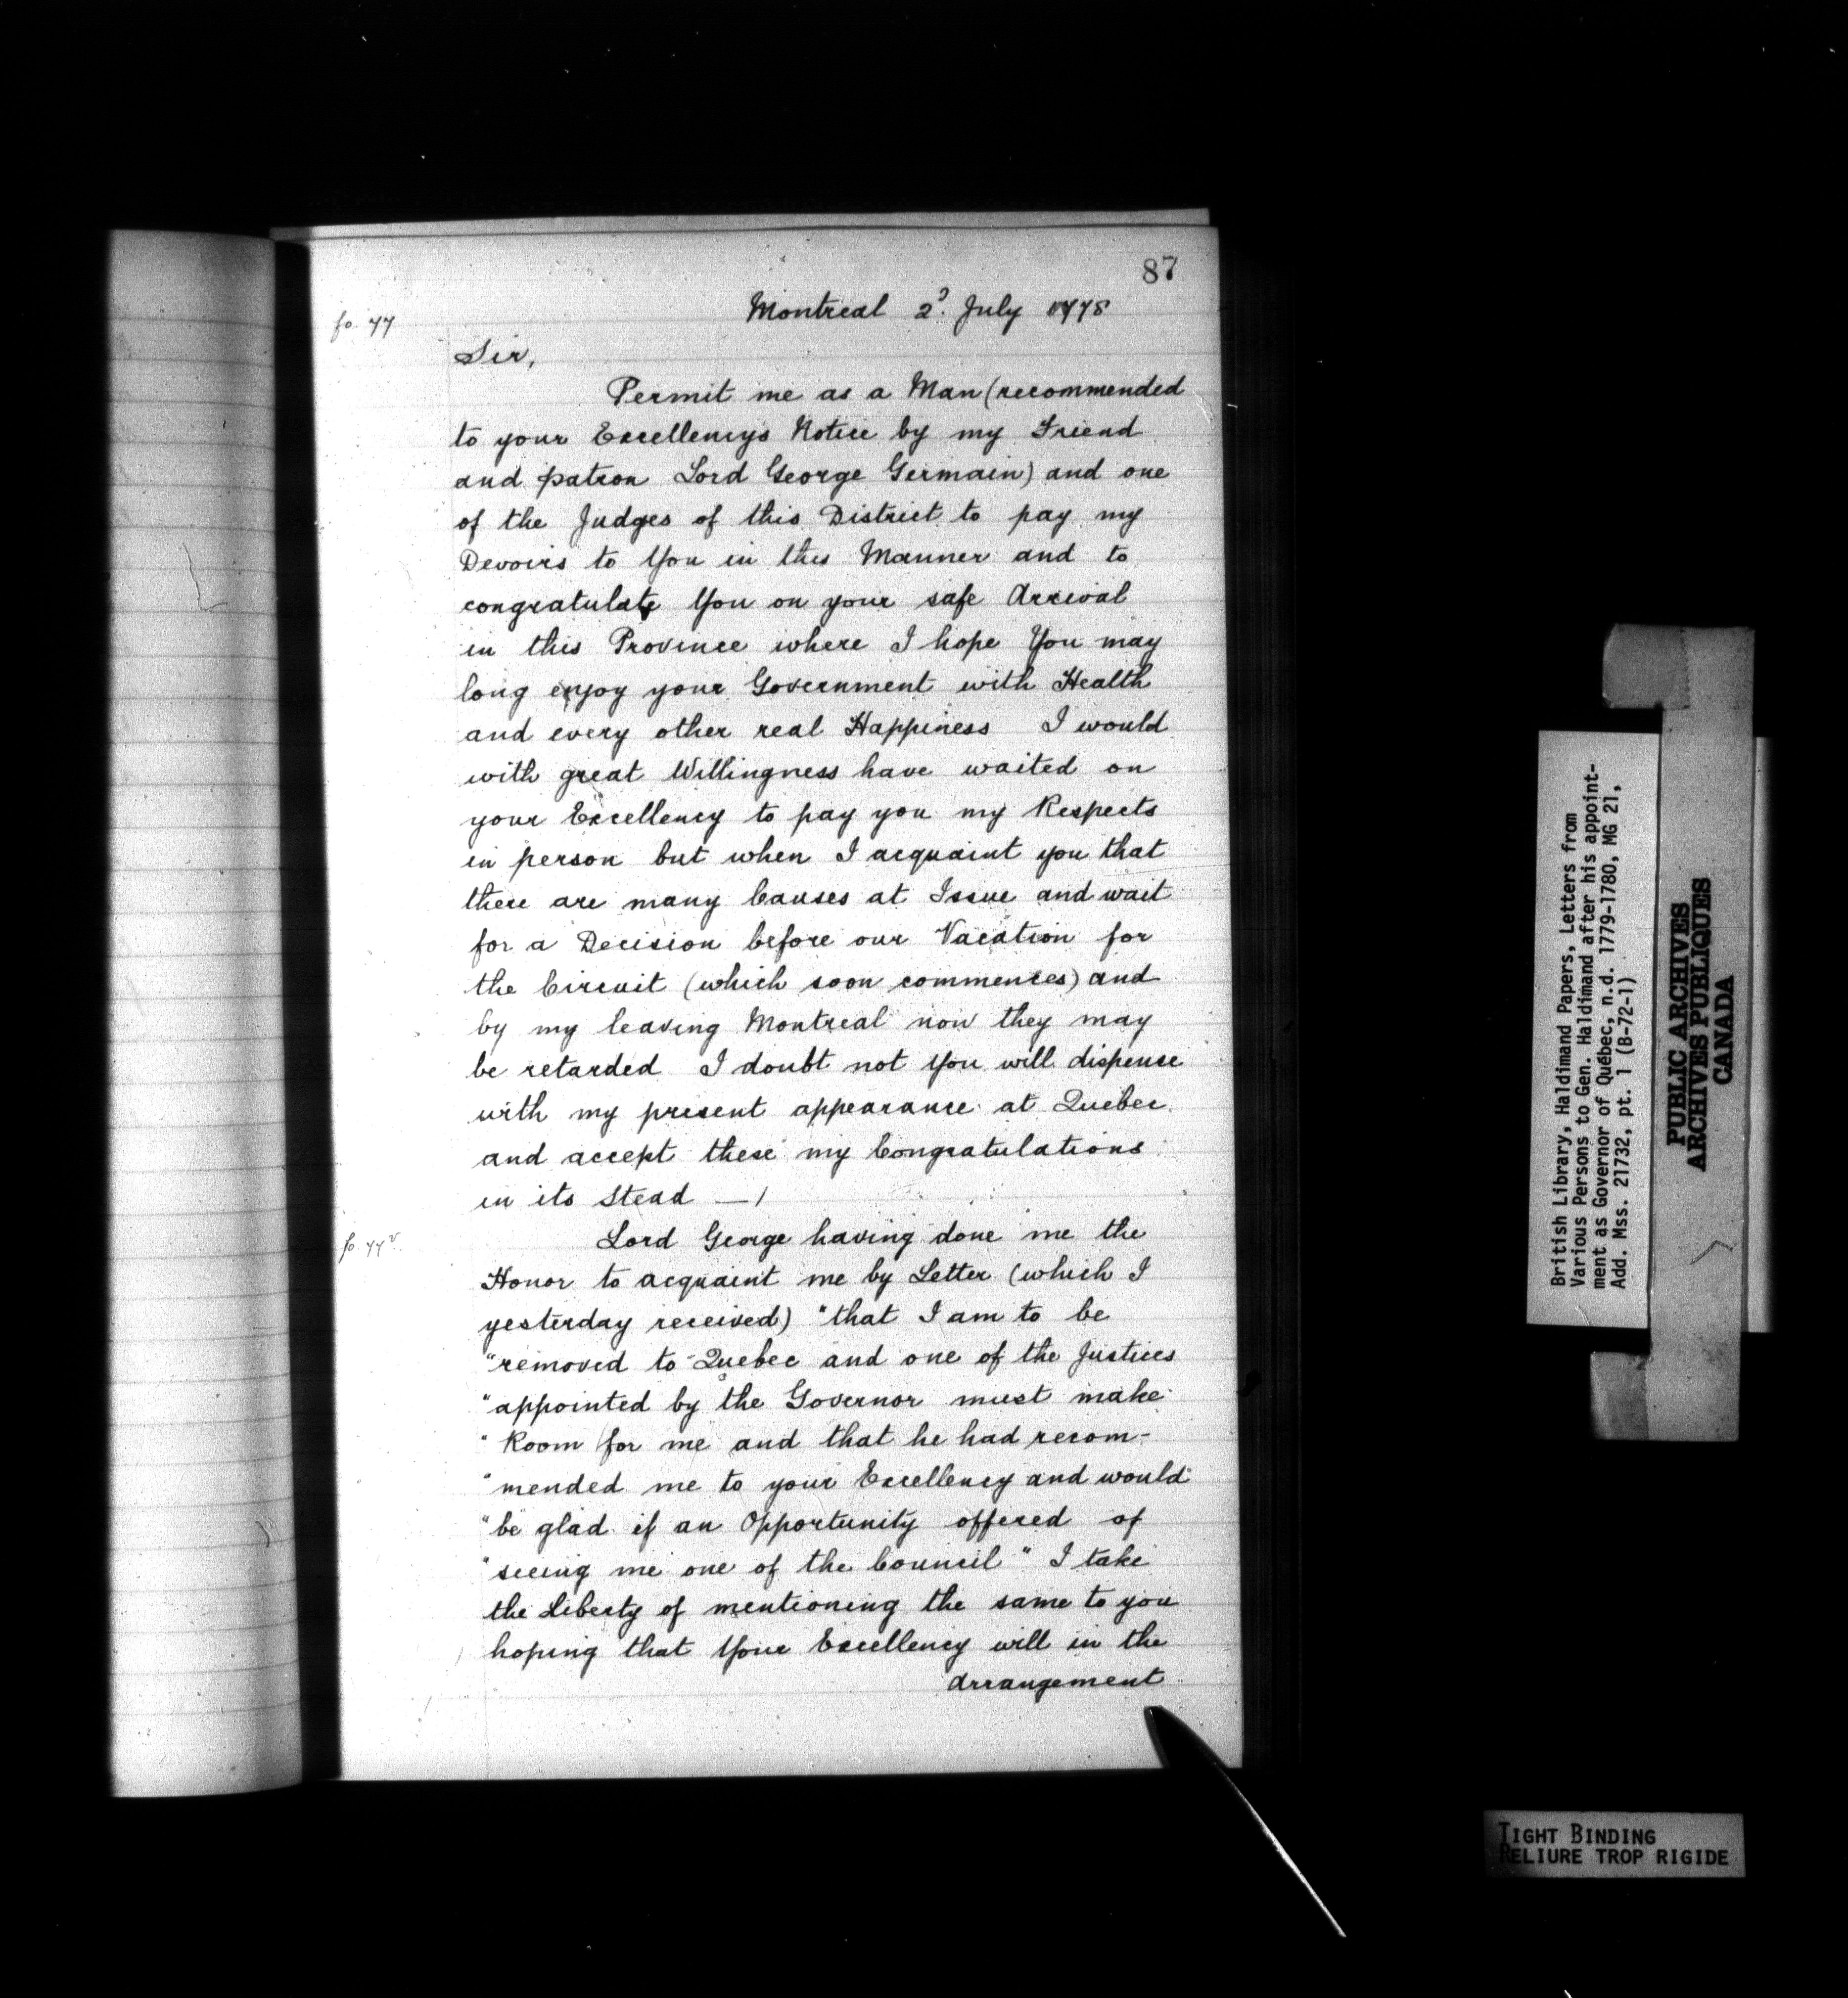 87
fo. 77
Montreal 2d. July 1778
Sir,
Permit me as a Man (recommended
to your Excellencys Notice by my Friend
and patron Lord George Germain) and one
of the Judges of this District to pay my
Devoirs to You in this Manner and to
congratulate You on your safe Arrival
in this Province where I hope You may
long enjoy your Government with Health
and every other real Happiness I would
with great Willingness have waited on
your Excellency to pay you my Respects
in person but when I acquaint you that
there are many Causes at Issue and wait
for a Decision before our Vacation for
the Circuit (which soon commences) and
by my leaving Montreal now they may
be retarded I doubt not You will dispense
with my present appearance at Quebec
and accept these my Congratulations
in its Stead —/
fo. 77v.
Lord George having done me the
Honor to acquaint me by Letter (which I
yesterday received) "that I am to be
"removed to Quebec and one of the Justices
"appointed by the Governor must make
"Room for me and that he had recom-
"mended me to your Excellency and would
"be glad if an Opportunity offered of
"seeing me one of the Council" I take
the Liberty of mentioning the same to you
hoping that Your Excellency will in the
arrangement
British Library, Haldimand Papers, Letters from
Various Persons to Gen. Haldimand after his appoint-
ment as Governor of Québec, n.d. 1779-1780, MG 21,
Add. Mss. 21732, pt. 1 (B-72-1)
PUBLIC ARCHIVES
ARCHIVES PUBLIQUES
CANADA
TIGHT BINDING
RELIURE TROP RIGIDE